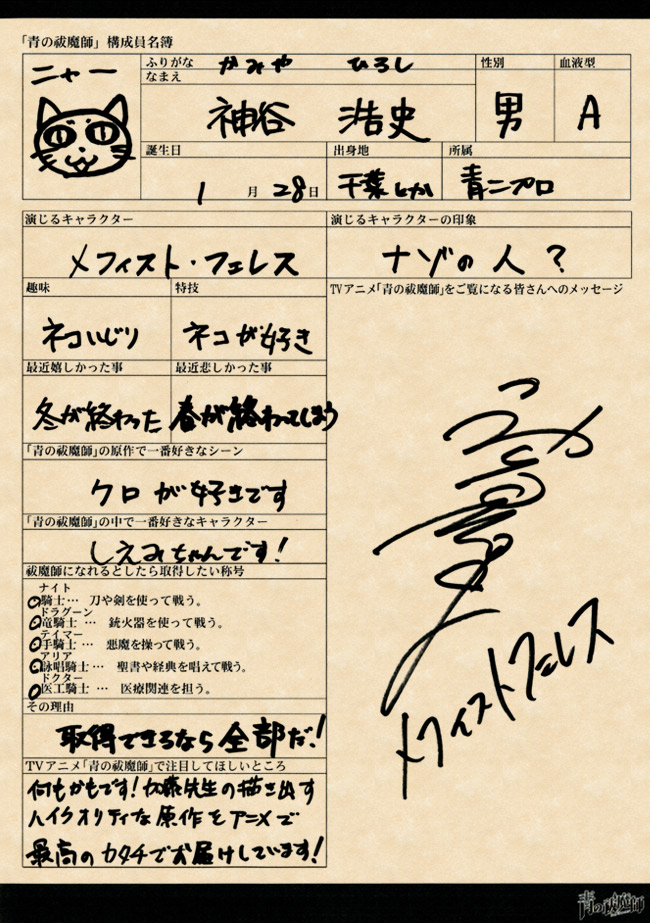 「青の祓魔師」構成員名簿
ニャー
ふりがな かみや ひろし
なまえ
神谷 浩史
性別
男
血液型
A
誕生日
1月28日
出身地
千葉とか
所属
青二プロ
演じるキャラクター
メフィスト・フェレス
演じるキャラクターの印象
ナゾの人?
趣味
ネコいじり
特技
ネコが好き
最近嬉しかった事
冬が終わった
最近悲しかった事
春が終わってしまう
「青の祓魔師」の原作で一番好きなシーン
クロが好きです
「青の祓魔師」の中で一番好きなキャラクター
しえみちゃんです!
祓魔師になれるとしたら取得したい称号
ナイト
騎士… 刀や剣を使って戦う。
ドラグーン
竜騎士… 銃火器を使って戦う。
テイマー
手騎士… 悪魔を操って戦う。
アリア
詠唱騎士… 聖書や経典を唱えて戦う。
ドクター
医工騎士… 医療関連を担う。
その理由
取得できるなら全部だ!
TVアニメ「青の祓魔師」で注目してほしいところ
何もかもです!加藤先生の描き出す
ハイクオリティな原作をアニメで
最高のカタチでお届けしています!
TVアニメ「青の祓魔師」をご覧になる皆さんへのメッセージ
メフィストフェレス
青の祓魔師